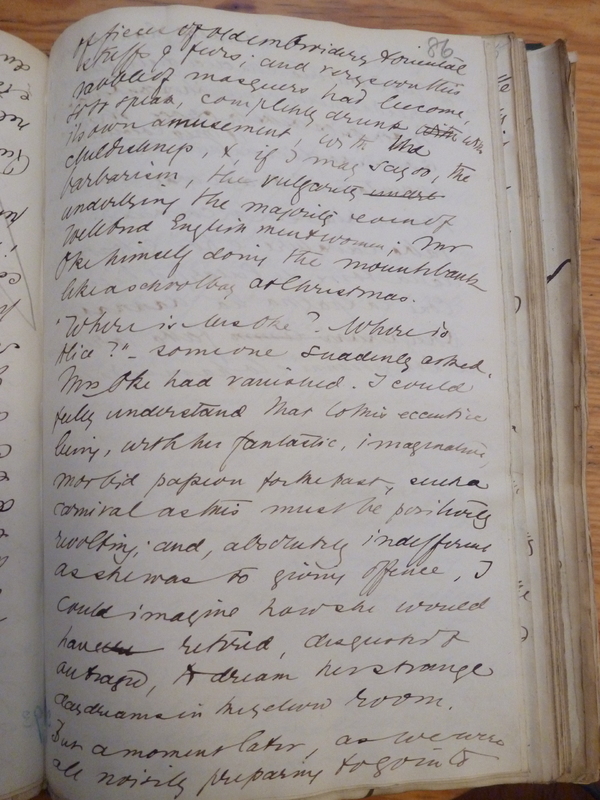 86
of pieces of old embroidery & oriental
stuffs & furs; and very soon this
rabble of masquers had become,
so to speak, completely drunk with with
its own amusement, with the
childishness, &, if I may say so, the
barbarism, the vulgarity underl
underlying the majority even of
wellbred English men & women; Mr
Oke himself doing the mountebank
like a schoolboy at Christmas.
"Where is Mrs Oke? Where is
Alice?" – someone suddenly asked.
Mrs Oke had vanished. I could
fully understand that to this eccentric
being, with her fantastic, imaginative,
morbid passion for the past, such a
carnival as this must be positively
revolting; and, absolutely indifferent
as she was to giving offence, I
could imagine how she would
have retired, disgusted &
outraged, to dream her strange
daydreams in the yellow room.
But a moment later, as we were
all noisily preparing to go in to